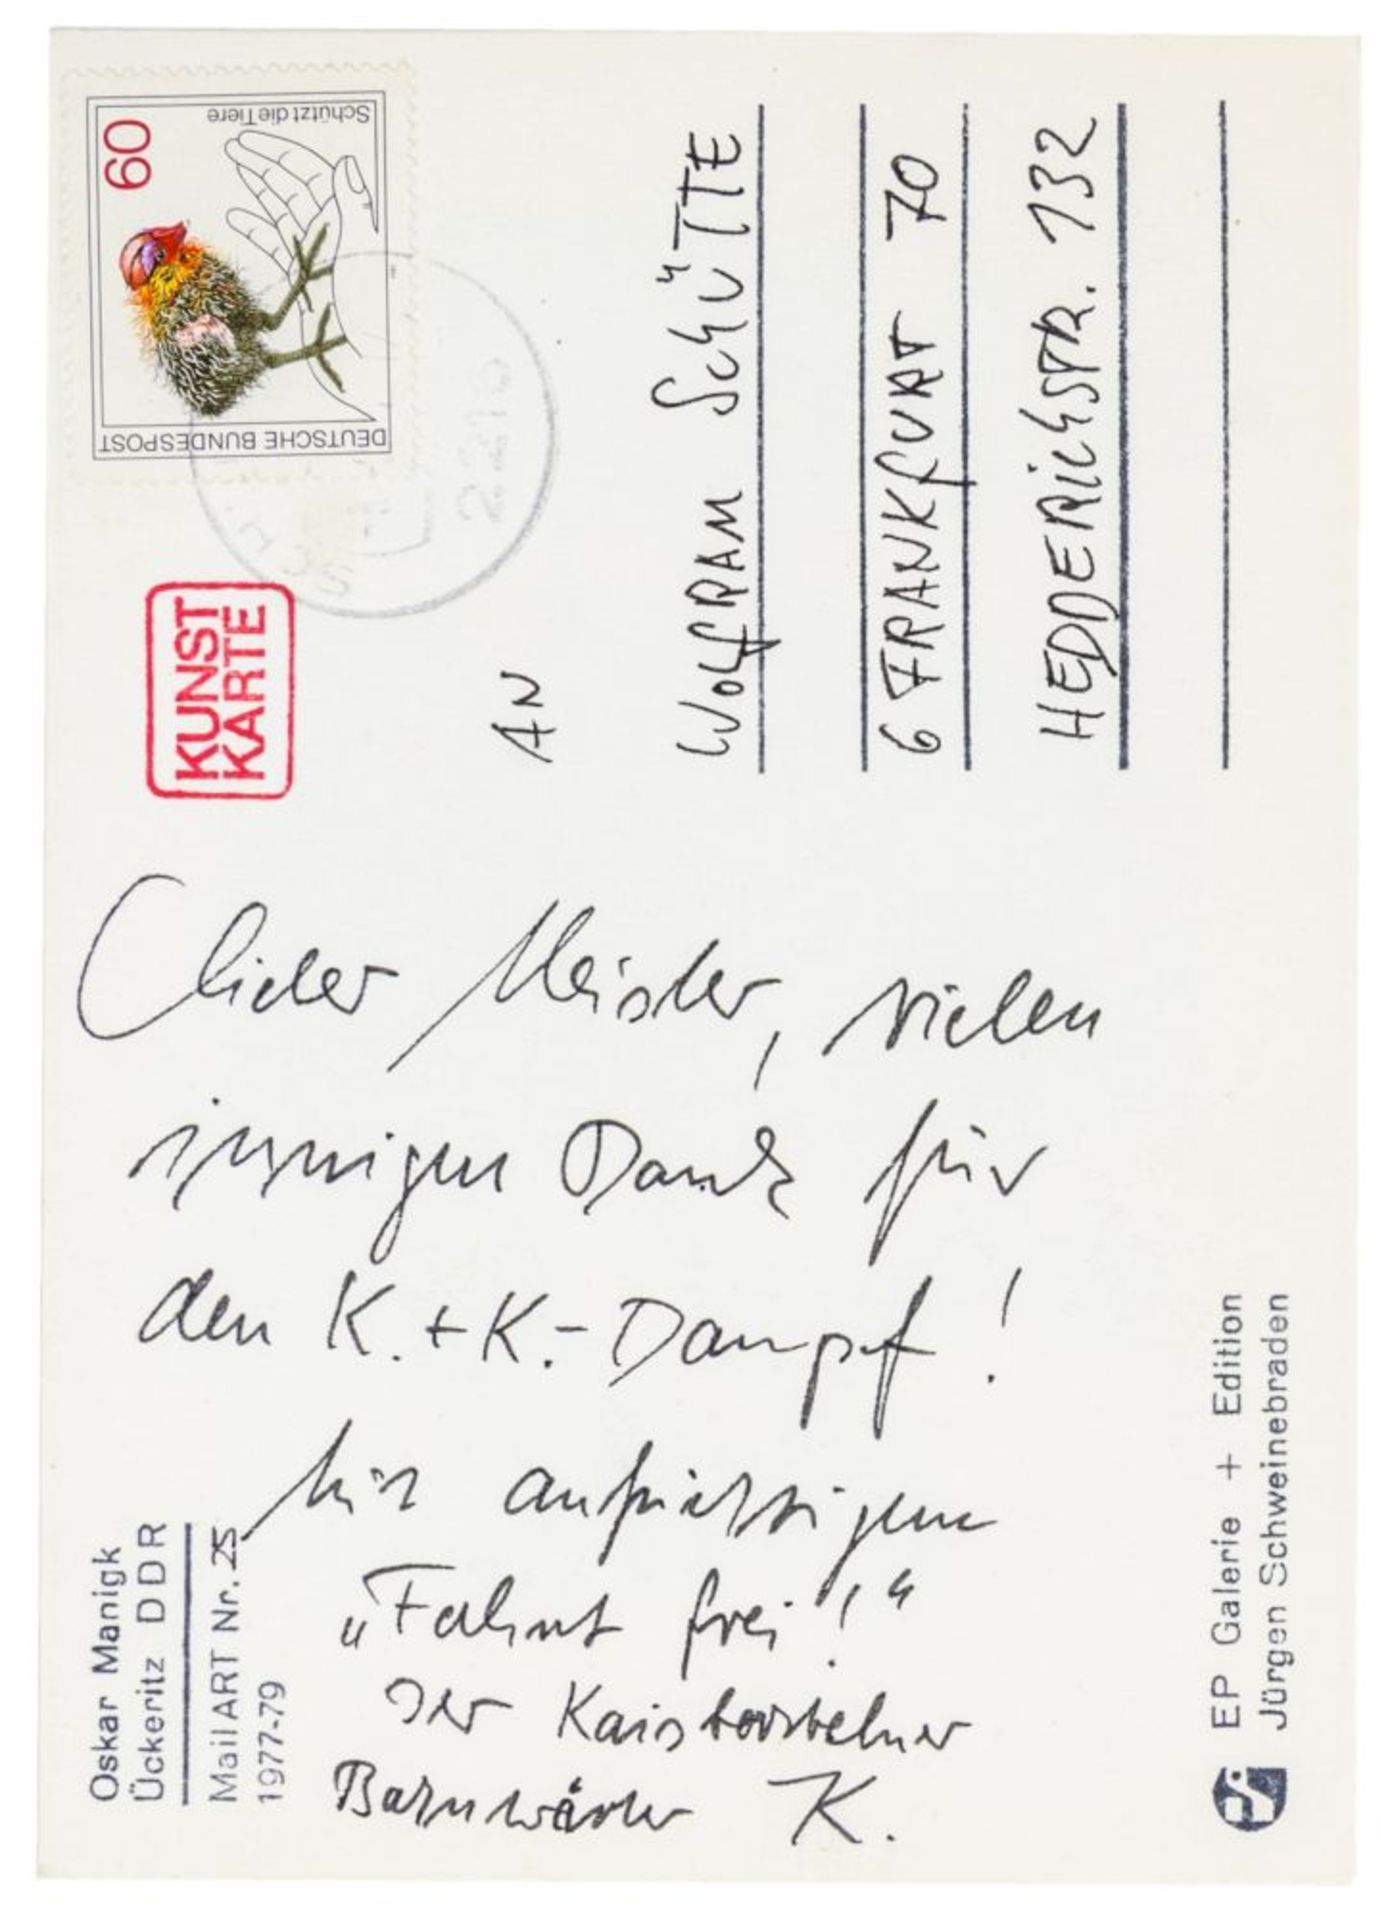 Schützt die Tiere
60
DEUTSCHE BUNDESPOST
KUNST
KARTE
AN
WOLFRAM SCHÜTTE
6 FRANKFURT 70
HEDDERICHSTR. 132
Lieber Meister, vielen
innigen Dank für
den K.+K.-Dampf!
Mit aufrichtigem
„Fahrt frei!“
Der
Bahnwärter K.
Oskar Manigk
Ückeritz DDR
MailART Nr. 25
1977-79
EP Galerie + Edition
Jürgen Schweinebraden